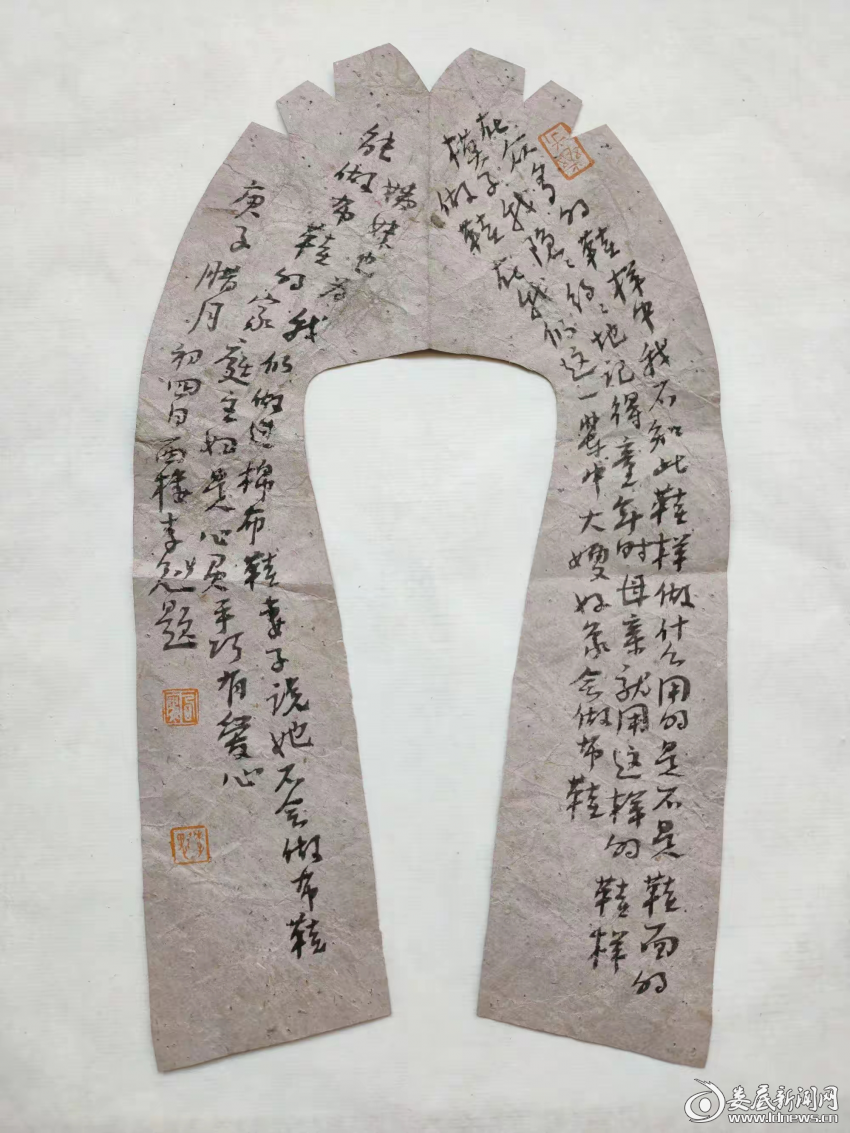 在众多的鞋样中我不知此鞋样做什么用的是不是鞋面的
模子我隐々约々地记得童年时母亲就用这样的鞋样
做鞋在我们这一辈中大嫂好象会做布鞋
妹也为我们做过棉布鞋妻子说她不会做布鞋
能做布鞋的家庭主妇是心灵手巧有爱心
庚子腊月初四日西楼李题
娄底新闻网
www.ldnews.cn